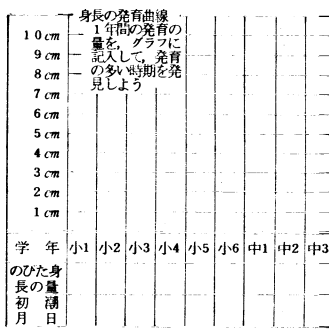 身長の発育曲線
1年間の発育の
量を,グラフに
記入して,発育
の多い時期を発
見しよう
10cm
9cm
8cm
7cm
6cm
5cm
4cm
3cm
2cm
1cm
学年 小1 小2 小3 小4 小5 小6 中1 中2 中3
のびた身
長の量
初潮
月日